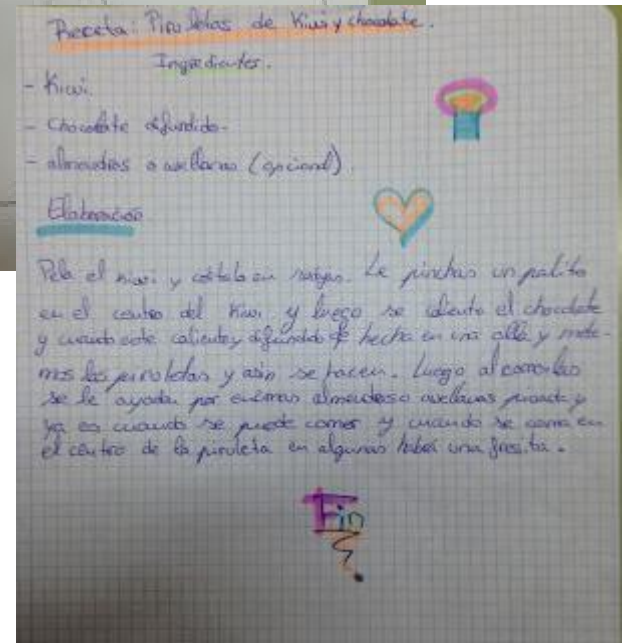 Receta: Piruletas de Kiwi y chocolate.
Ingredientes.
- Kiwi.
- Chocolate difundido.
- almendras o avellanas (opcional).
Elaboración
Pela el kiwi y córtalo en rodajas. Le pinchas un palito
en el centro del kiwi y luego se calienta el chocolate
y cuando este caliente y difundido se hecha en una olla y mete-
mos las piruletas y asin se hacen. Luego al comerlas
se le ayada por encimas almendras o avellanas picada y
ya es cuando se puede comer y cuando se coma en
el centro de la piruleta en algunas haber una fresita.
Fin